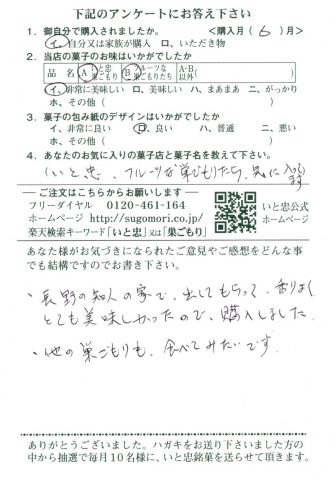 下記のアンケートにお答え下さい
1．御自分で購入されましたか。 <購入月( 6 )月>
イ、自分又は家族が購入 ロ、いただき物
2．当店の菓子のお味はいかがでしたか
品名 A いと忠巣ごもり B フルーツな巣ごもりたち A·B以外( )
イ、非常に美味しい ロ、美味しい ハ、まあまあ ニ、がっかり
ホ、その他( )
3．菓子の包み紙のデザインはいかがでしたか
イ、非常に良い ロ、良い ハ、普通 ニ、悪い
ホ、その他( )
4．あなたのお気に入りの菓子店と菓子名を教えて下さい。
(いと忠、フルーツな巣ごもりたち、気に入ってます
ご注文はこちらからお願いします
フリーダイヤル 0120-461-164
ホームページ http://sugomori.co.jp/
楽天検索キーワード「いと忠」又は「巣ごもり」
いと忠公式
ホームページ
あなた様がお気づきになられたご意見やご感想をどんな事
でも結構ですのでお書き下さい。
・長野の知人の家で、出してもらって、香りよく
とても美味しかったので、購入しました。
・他の巣ごもりも、食べてみたいです。
ありがとうございました。ハガキをお送り下さいました方の
中から抽選で毎月10名様に、いと忠銘菓を送らせて頂きます。